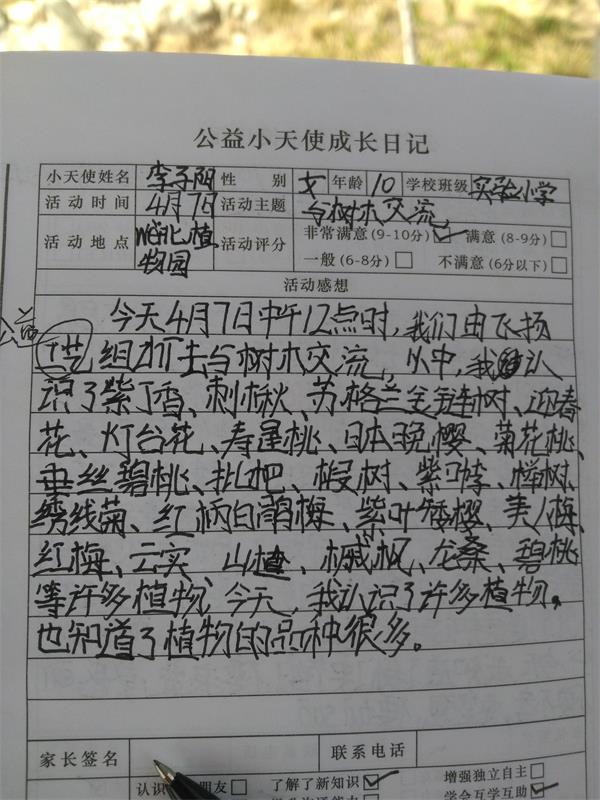 公益小天使成长日记
小天使姓名 李子阳 性别 女 年龄 10 学校班级 实验小学
活动时间 4月7日 活动主题 与树木交流
活动地点 植物园 活动评分 非常满意(9-10分) 满意(8-9分)
一般(6-8分) 不满意(6分以下)
活动感想
今天4月7日中午12点时,我们由飞扬
公益
组织去与树木交流,从中,我认
识了紫丁香、刺楸、苏格兰金链树、迎春
花、灯台花、寿星桃、日本晚樱、菊花桃、
垂丝碧桃、枇杷、椴树、紫荆、榉树、
绣线菊、红柄白鹃梅、紫叶矮樱、美人梅、
红梅、云实 山楂、槭枫、龙桑、碧桃
等许多植物、今天,我认识了许多植物。
也知道了植物的品种很多。
家长签名 联系电话
认识 朋友 了解了新知识 增强独立自主
学会互学互助